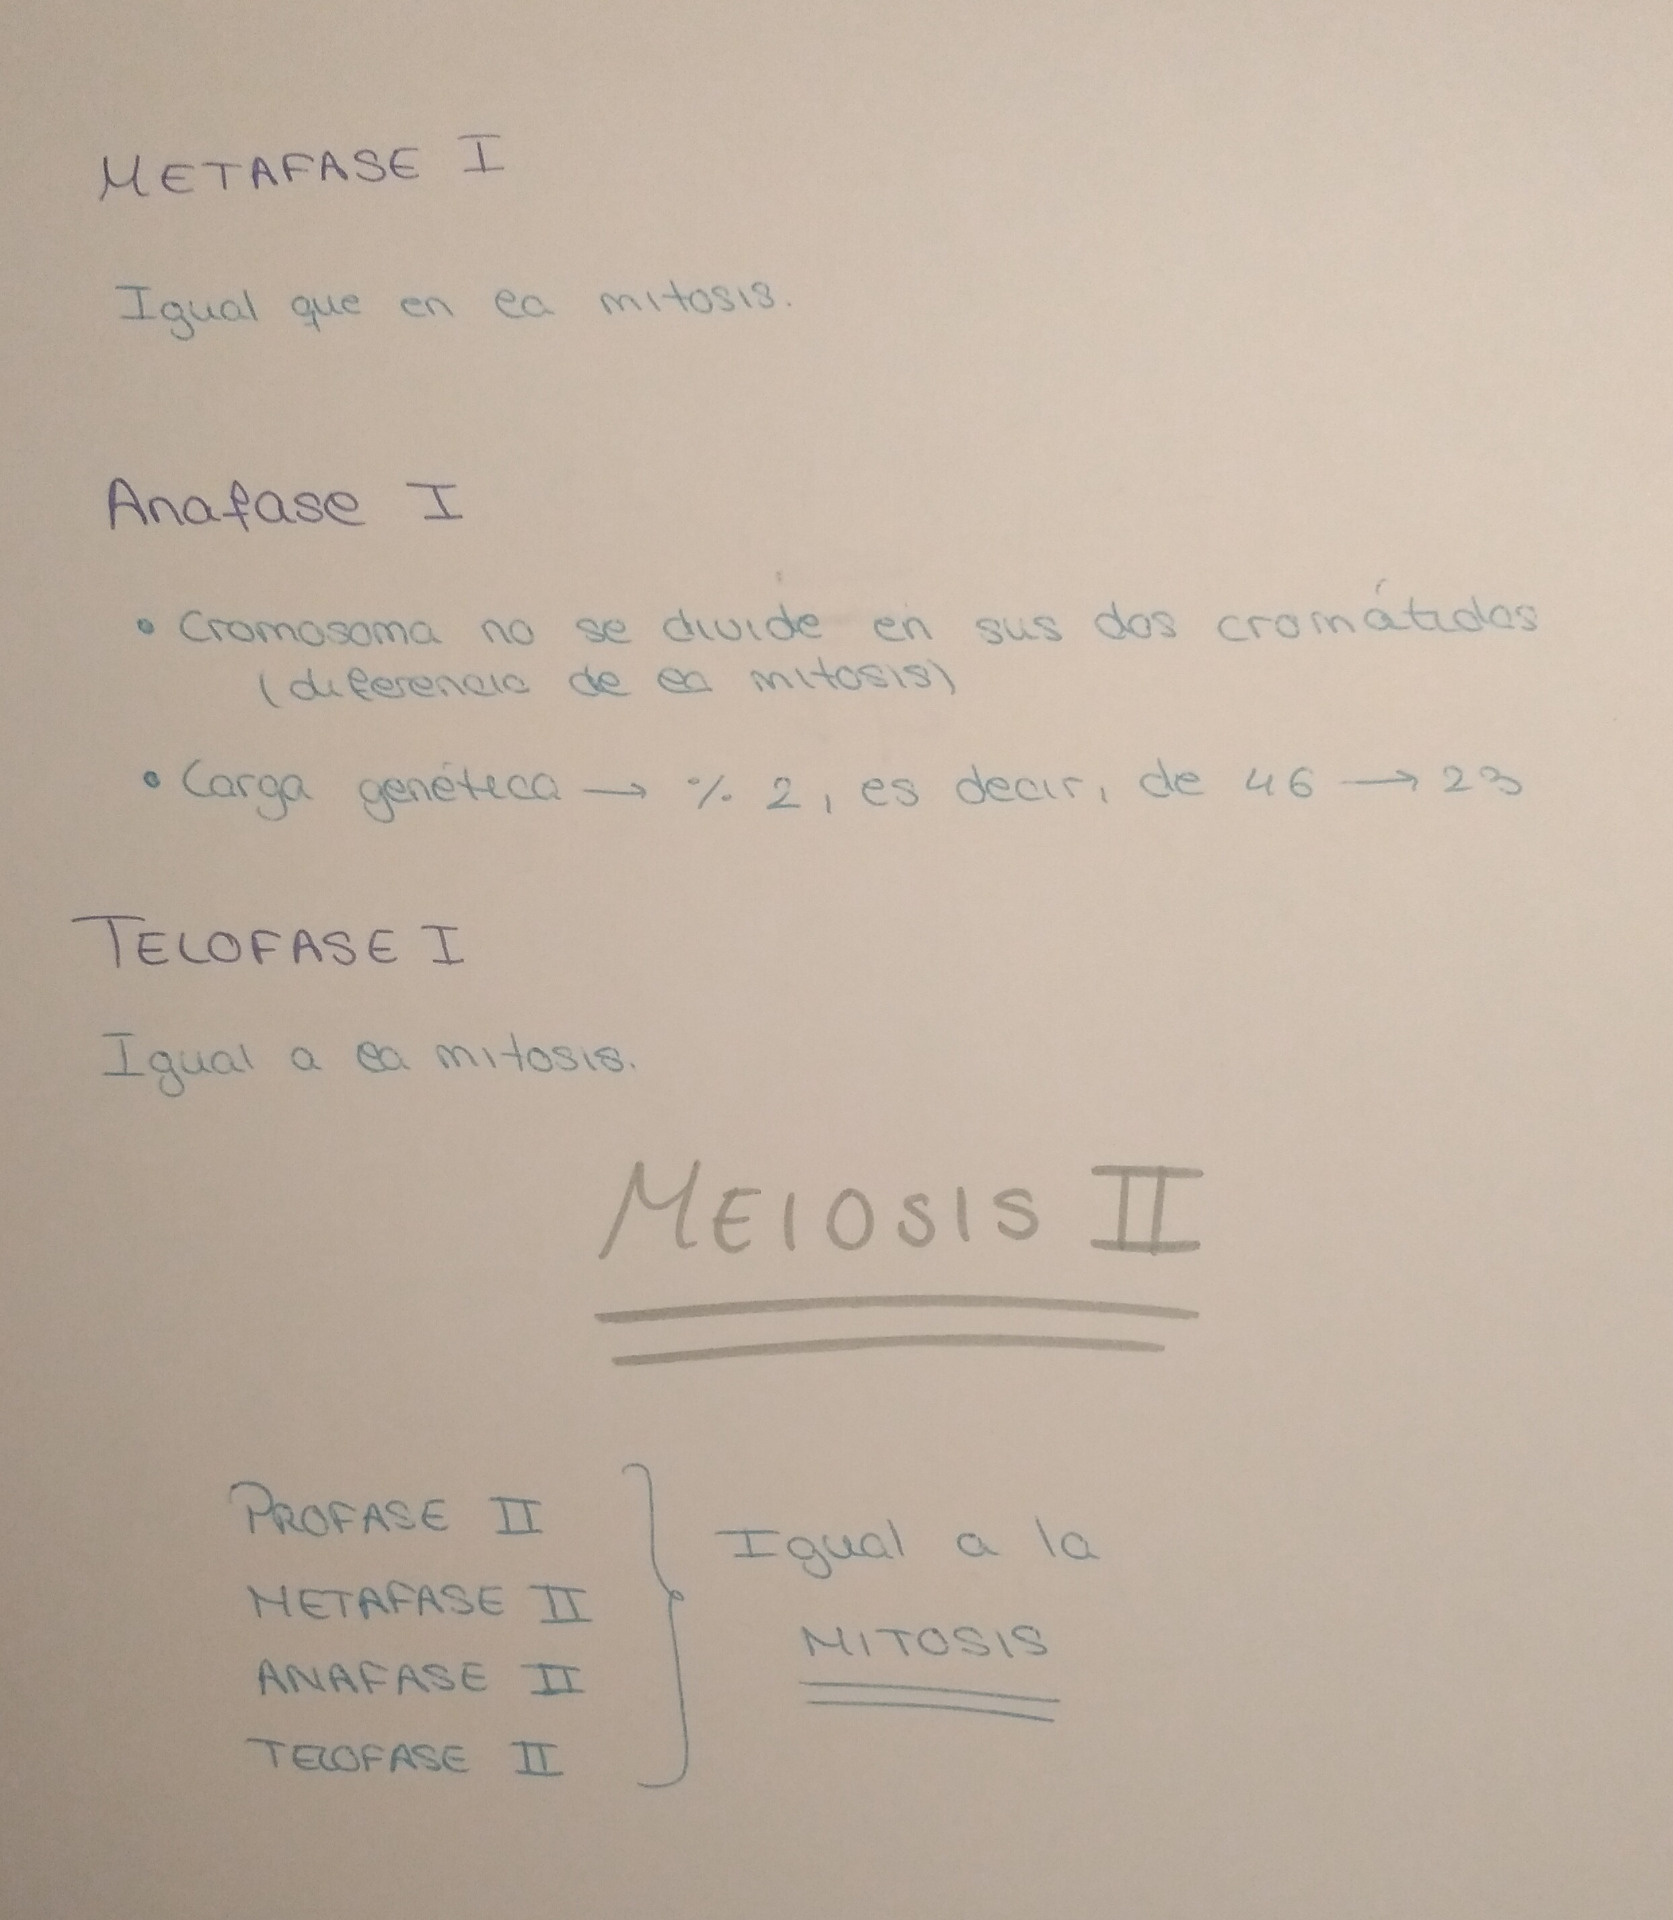 METAFASE I
Igual que en la mitosis.
Anafase I
• Cromosoma no se divide en sus dos cromátidas
(diferencia de la mitosis)
• Carga genética → % 2, es decir, de 46 → 23
TELOFASE I
Igual a la mitosis.
MEIOSIS II
PROFASE II
METAFASE II
ANAFASE II
TELOFASE II
Igual a la
MITOSIS